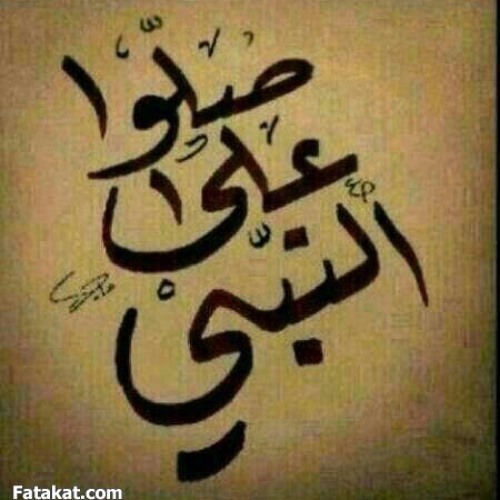 صلّوا
على
النبيّ
Fatakat.com